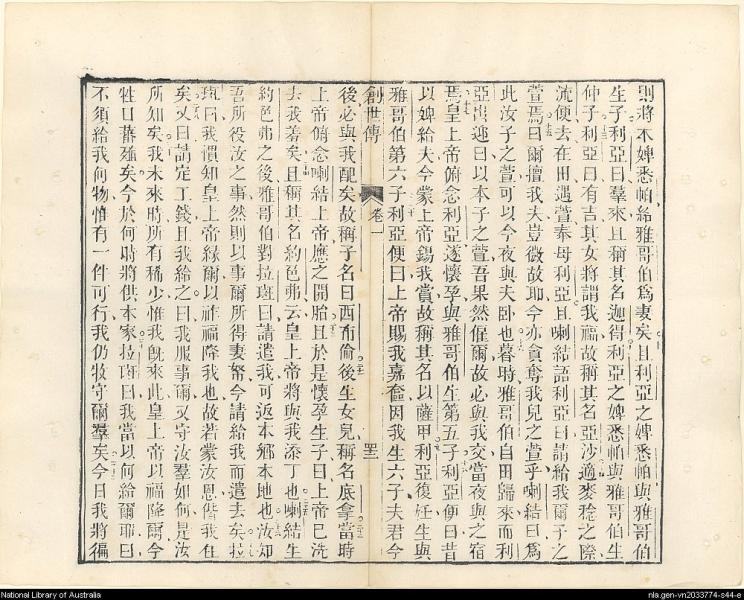 則將本婢悉帕給雅哥伯爲妻矣且利亞之婢悉帕與雅哥伯
生子利亞曰羣來且稱其名迦得利亞之婢悉帕與雅哥伯生
仲子利亞曰有吉其女將謂我福故稱其名亞沙適麥稔之際
流便去在田遇萱奉母利亞且喇結語利亞曰請給我爾子之
萱焉曰爾擅我夫豈微故耶今亦貪奪我兒之萱乎喇結曰爲
此汝子之萱可以今夜與夫臥也暮時雅哥伯自田歸來而利
亞出迎曰以本子之萱吾果然僱爾故必與我交當夜與之宿
焉皇上帝俯念利亞遂懷孕與雅哥伯生第五子利亞便曰昔
以婢給夫今蒙上帝錫我賞故稱其名以薩甲利亞復妊生與
雅哥伯第六子利亞便曰上帝賜我嘉奩因我生六子夫君今
創世傳
卷一
四三
後必與我配矣故稱子名曰西布倫後生女兒稱名底拿當時
上帝俯念喇結上帝應之開胎且於是懷孕生子曰上帝已洗
去我羞矣且稱其名約色弗云皇上帝將與我添丁也喇結生
約色弗之後雅哥伯對拉班曰請遣我可返本鄉本地也汝知
吾所役汝之事然則以事爾所得妻孥今請給我而遣去矣拉
班曰我慣知皇上帝緣爾以祚福降我也故若蒙汝恩偕我住
矣又曰請定工錢且我給之曰我服事爾又守汝羣如何是汝
所知矣我未來時所有稀少惟我既來此皇上帝以福降爾今
牲口蕃殖矣今於何時將供本家拉班曰我當以何給爾耶曰
不須給我何物惟有一件可行我仍牧守爾羣矣今日我將徧
National Library of Australia
nla.gen-vn2033774-s44-e